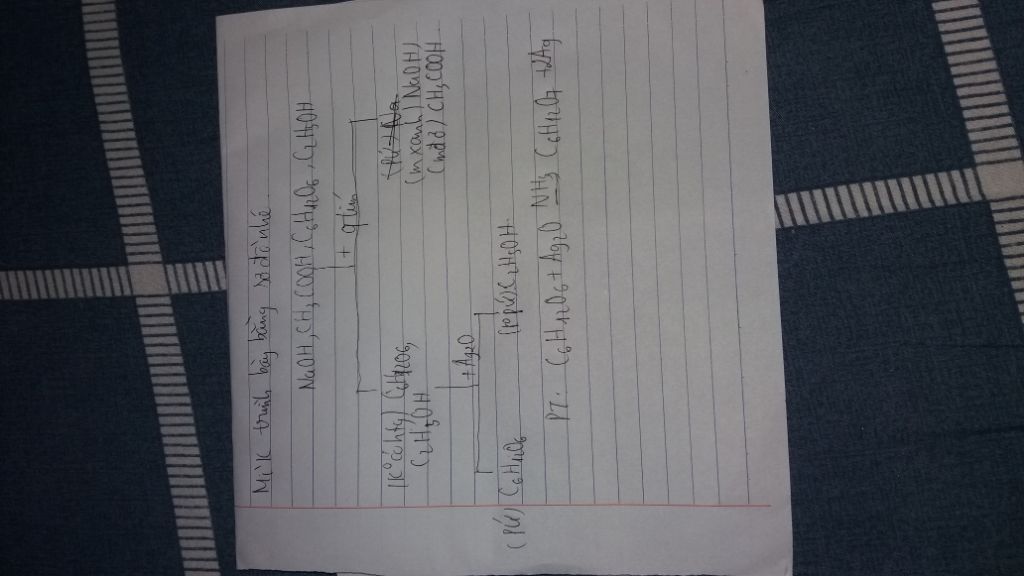 Mìk trình bày bằng sơ đồ nhé
NaOH, CH3COOH, C6H12O6, C2H5OH
+ qtím
(K° có htg) C6H12O6, C2H5OH
(m xanh) NaOH
(mđđ) CH3COOH
+ Ag2O
(pứ) C6H12O6
(ko pứ) C2H5OH
PT: C6H12O6 + Ag2O NH3→ C6H12O7 + 2Ag